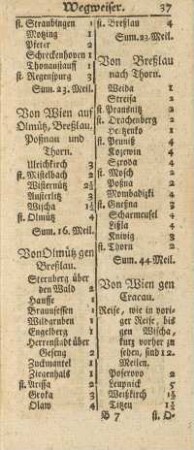 Wegweiser. 37
st. Straubingen 1
Motzing 1
Pfeter 2
Schreckenhoven 1
Thonaustauff 1
st. Regenspurg 3
Sum. 23. Meil.
Von Wien auf
Olmütz, Breßlau,
Poßnau und
Thorn.
Ulrichkirch 3
st. Mistelbach 2
Wisternütz 2½
Austerlitz 3
Wischa 1½
st. Olmütz 4
Sum. 16. Meil.
Von Olmütz gen
Breßlau.
Sternberg über
den Wald 2
Hausse 1
Braunseffen 1
Wildgruben 1
Engelberg 1
Herrenstadt über
Geseng 2
Zuckmantel 1
Ziegenhals 1
st. Neissa 2
Groka 3
Olaw 4
st. Breßlau 4
Sum. 23. Meil.
Von Breßlau
nach Thorn.
Weida 1
Streisa 2
st. Prausnitz 2
st. Drachenberg 2
Hertzenko 1
st. Prunitz 4
Kozerwin 4
Szroda 4
st. Mosch 2
Poßna 2
Mombadizki 4
st. Gnesna 3
Scharmeusel 4
Lißla 4
Kniwig 3
st. Thorn 2
Sum. 44. Meil.
Von Wien gen
Cracau.
Reise, wie in voriger
Reise, bis
gen Wischa,
kurtz vorher zu
sehen, sind 12.
Meilen.
Poserovo 2
Leupnick 5
Weißkirch 1½
Titzen 1½
B 7 st. O-